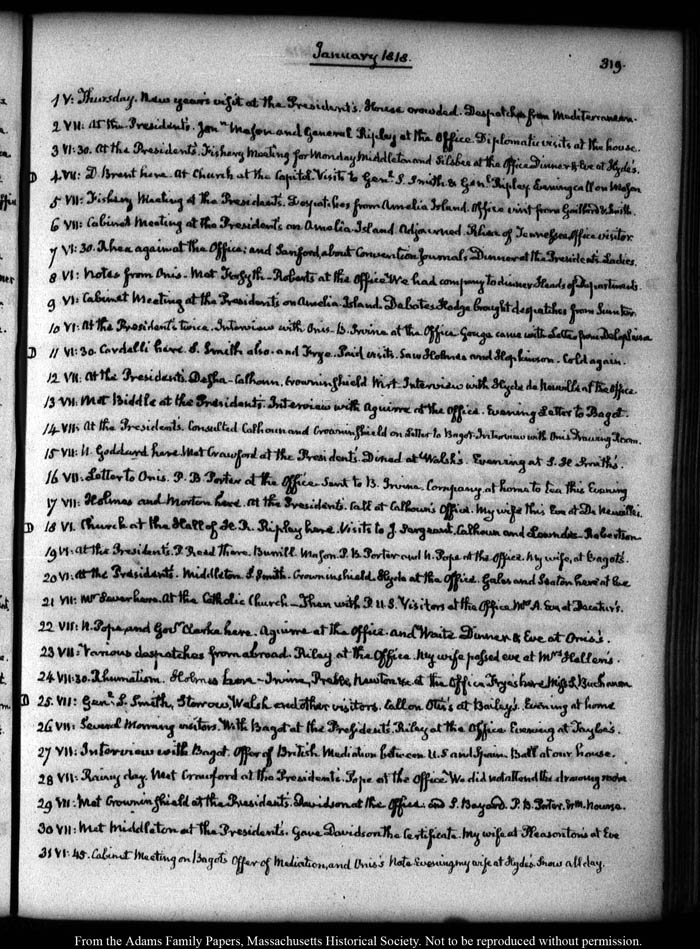 January 1818.
319.
1 V: Thursday. New year's visit at the President's. House crowded. Despatches from Mediterranean.
2 VII: At the Presidents. Jonn Mason and General Ripley at the Office Diplomatic visits at the house.
3 VI:30. At the Presidents. Fishery Meeting for Monday Middleton and Silsbee at the Office Dinner & Eve at Hyde's.
D 4 VII: D. Brent here. At Church at the Capitol. Visits to Genl. S. Smith & Genl. Ripley Evening call on Mason
5 VII: Fishery Meeting at the Presidents. Despatches from Amelia Island. Office visit from Gaillard & Smith.
6 VII: Cabinet Meeting at the Presidents on Amelia Island. Adjourned. Rhea of Tennessee Office visitor
7 VI:30. Rhea again at the Office; and Sanford, about Convention Journals, Dinner at the President's Ladies.
8 VI: Notes from Onis. Met Forsyth - Roberts at the Office. We had company to dinner Heads of Departments.
9 VI: Cabinet Meeting at the Presidents on Amelia Island. Debates Hodge brought despatches from Sumter.
10 VI: At the President's twice. Interview with Onis - B. Irvine at the Office Gouge came with Letter from Delaplaine
D 11 VI:30. Cardelli here. S. Smith also - and Frye. Paid visits. Saw Holmes and Hopkinson. Cold again.
12 VII: At the Presidents. Desha - Calhoun, Crowninshield Wirt. Interview with Hyde de Neuville at the Office
13 VII: Met Biddle at the Presidents. Interview with Aguirre at the Office. Evening Letter to Bagot.
14 VII: At the Presidents. Consulted Calhoun and Crowninshield on Letter to Bagot. Interview with Onis Drawing Room.
15 VII: N. Goddard here. Met Crawford at the Presidents. Dined at Walsh's. Evening at S. H. Smith's.
16 VII: Letter to Onis. P. B. Porter at the Office. Sent to B. Irvine. Company at home to tea this Evening
17 VII: Holmes and Morton here. At the Presidents. Call at Calhoun's Office. My wife this Eve at De Neuville's.
D 18 VI. Church at the Hall of H. R. Ripley here. Visits to J. Sergeant, Calhoun and Lowndes - Robertson
19 VI: At the Presidents. P. Reed There. Burrill. Mason. P. B. Porter and N. Pope at the Office. My wife, at Bagot's.
20 VI: At the Presidents. Middleton. S. Smith. Crowninshield. Hyde at the Office. Gales and Seaton here at Eve
21 VII: Mr Sever here. At the Catholic Church - Then with P. U. S. Visitors at the Office Mrs A. Eve at Decatur's.
22 VII: N. Pope, and Govr. Clarke here. Aguirre at the Office. and Waite Dinner & Eve at Onis's.
23 VII: Various despatches from abroad. Riley at the Office. My wife passed eve at Mrs Hellen's.
24 VII:30. Rheumatism. Holmes here - Irvine, Preble, Newton &c at the Office Fryes here Miss S. Buchanan
D 25. VII: Genl. S. Smith, Storrow, Walsh and other visitors. Call on Otis's at Bailey's. Evening at home
26 VII: Several Morning visitors. With Bagot at the Presidents. Riley at the Office Evening at Tayloe's.
27 VII: Interview with Bagot. Offer of British Mediation between U.S and Spain. Ball at our house.
28 VII: Rainy day. Met Crawford at the Presidents. Pope at the Office. We did not attend the drawing room
29 VII: Met Crowninshield at the Presidents. Davidson at the Office. and S. Bayard. P. B. Porter. & Mr. Nourse.
30 VII: Met Middleton at the Presidents. Gave Davidson the Certificate. My wife at Pleasonton's at Eve
31 VI:45. Cabinet Meeting on Bagot's Offer of Mediation, and Onis's Note Evening my wife at Hyde's. Snow all day.
From the Adams Family Papers, Massachusetts Historical Society. Not to be reproduced without permission.